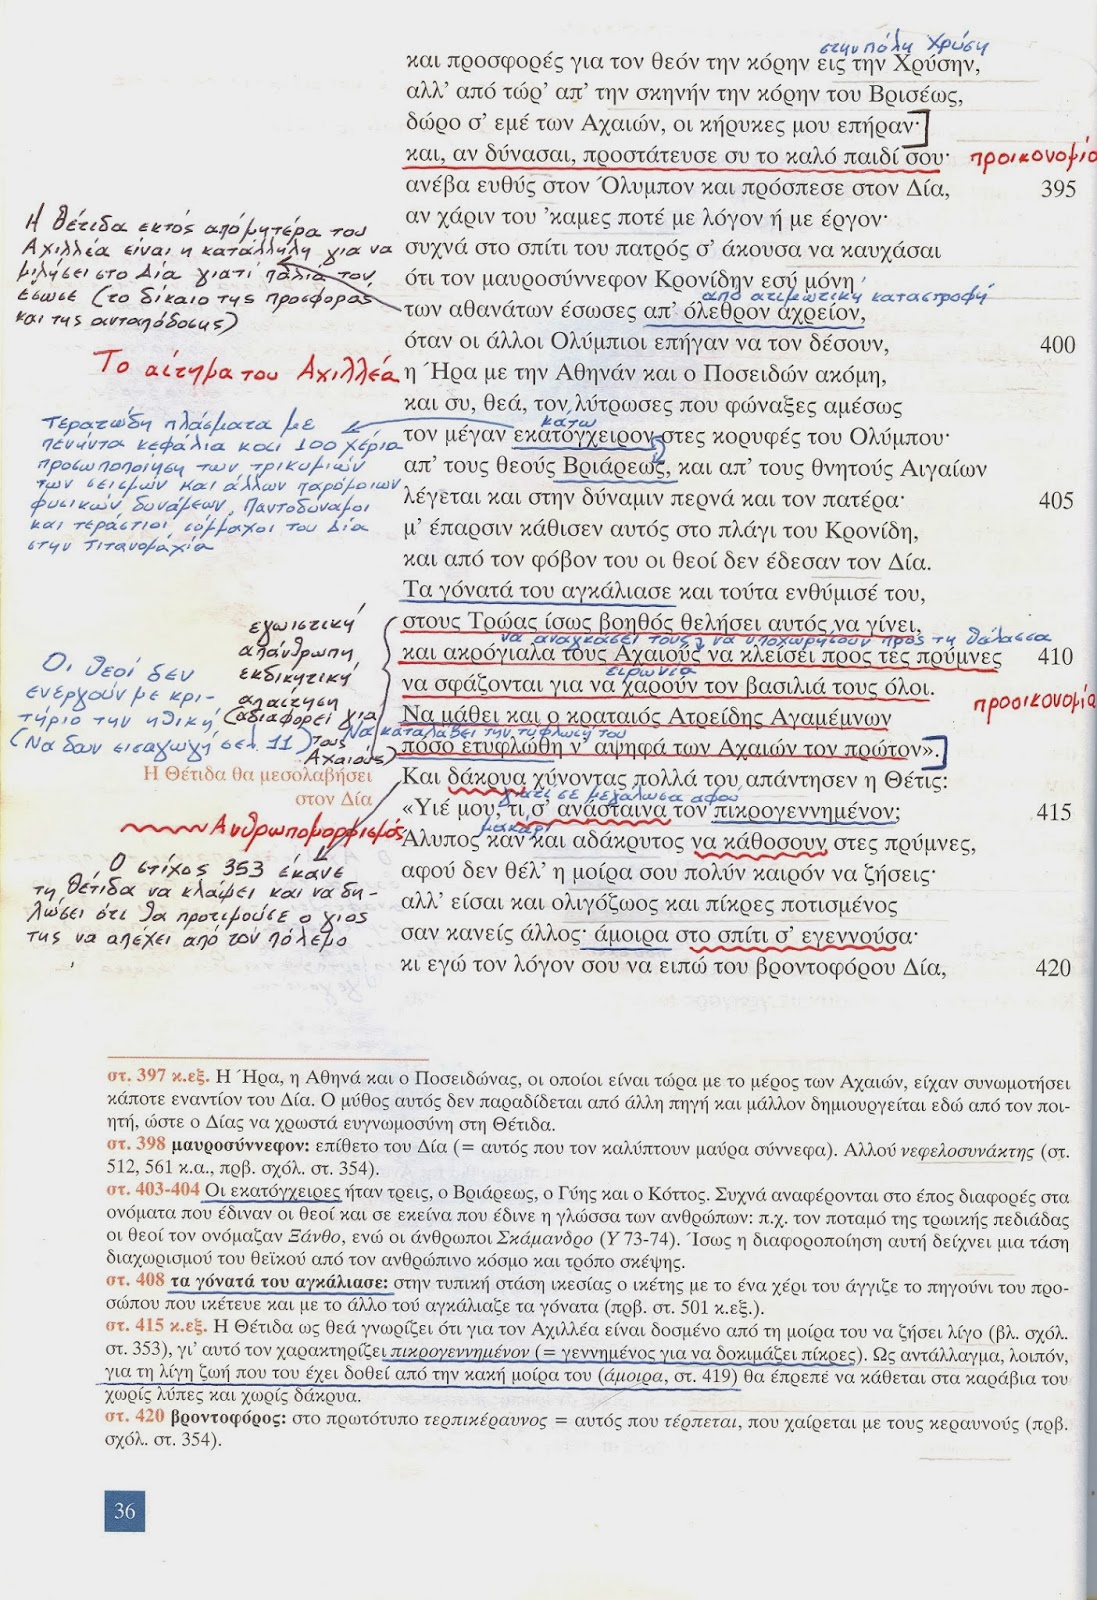 στην πόλη Χρύση
και προσφορές για τον θεόν την κόρην εις την Χρύσην,
αλλ’ από τώρ’ απ’ την σκηνήν την κόρην του Βρισέως,
δώρο σ’ εμέ των Αχαιών, οι κήρυκες μου επήραν·
και, αν δύνασαι, προστάτευσε συ το καλό παιδί σου· προικονομία
ανέβα ευθύς στον Όλυμπον και πρόσπεσε στον Δία, 395
αν χάριν του ’καμες ποτέ με λόγον ή με έργον·
συχνά στο σπίτι του πατρός σ’ άκουσα να καυχάσαι
ότι τον μαυροσύννεφον Κρονίδην εσύ μόνη
από ατιμωτική καταστροφή
των αθανάτων έσωσες απ’ όλεθρον αχρείον,
όταν οι άλλοι Ολύμπιοι επήγαν να τον δέσουν, 400
η Ήρα με την Αθηνάν και ο Ποσειδών ακόμη,
και συ, θεά, τον λύτρωσες που φώναξες αμέσως
κάτω
τον μέγαν εκατόγχειρον στες κορυφές του Ολύμπου·
απ’ τους θεούς Βριάρεως, και απ’ τους θνητούς Αιγαίων
λέγεται και στην δύναμιν περνά και τον πατέρα· 405
μ’ έπαρσιν κάθισεν αυτός στο πλάγι του Κρονίδη,
και από τον φόβον του οι θεοί δεν έδεσαν τον Δία.
Τα γόνατά του αγκάλιασε και τούτα ενθύμισέ του,
στους Τρώας ίσως βοηθός θελήσει αυτός να γίνει,
να αναγκάσει τους να υποχωρήσουν προς τη θάλασσα
και ακρόγιαλα τους Αχαιούς να κλείσει προς τες πρύμνες 410
ειρωνία
να σφάζονται για να χαρούν τον βασιλιά τους όλοι.
προοικονομία
Να μάθει και ο κραταιός Ατρείδης Αγαμέμνων
Να καταλάβει την τύφλωσή του
πόσο ετυφλώθη ν’ αψηφά των Αχαιών τον πρώτον».
Και δάκρυα χύνοντας πολλά του απάντησεν η Θέτις:
γιατί σε μεγάλωσα αφού
«Υιέ μου, τι σ’ ανάσταινα τον πικρογεννημένον; 415
μακάρι
Άλυπος καν και αδάκρυτος να κάθοσουν στες πρύμνες,
αφού δεν θέλ’ η μοίρα σου πολύν καιρόν να ζήσεις·
αλλ’ είσαι και ολιγόζωος και πίκρες ποτισμένος
σαν κανείς άλλος· άμοιρα στο σπίτι σ’ εγεννούσα·
κι εγώ τον λόγον σου να ειπώ του βροντοφόρου Δία, 420
Η Θέτιδα εκτός από μητέρα του
Αχιλλέα είναι η κατάλληλη για να
μιλήσει στο Δία γιατί παλιά τον
έσωσε (το δίκαιο της προσφοράς
και της ανταπόδοσης)
Το αίτημα του Αχιλλέα
τερατώδη πλάσματα με
πενήντα κεφάλια και 100 χέρια
προσωποποίηση των τρικυμιών
των σεισμών και άλλων παρόμοιων
φυσικών δυνάμεων. Παντοδύναμοι
και τεράστιοι σύμμαχοι του Δία
στην Τιτανομαχία
εγωιστική
απάνθρωπη
εκδικητική
απαίτηση
(αδιαφορεί για
τους
Αχαιούς)
Οι θεοί δεν
ενεργούν με κρι-
τήριο την ηθική
(Να δουν εισαγωγή σελ. 11)
Η Θέτιδα θα μεσολαβήσει
στον Δία
Ανθρωπομορφισμός
Ο στίχος 353 έκανε
τη Θέτιδα να κλάψει και να δη-
λώσει ότι θα προτιμούσε ο γιος
της να απέχει από τον πόλεμο
στ. 397 κ.εξ. Η Ήρα, η Αθηνά και ο Ποσειδώνας, οι οποίοι είναι τώρα με το μέρος των Αχαιών, είχαν συνωμοτήσει
κάποτε εναντίον του Δία. Ο μύθος αυτός δεν παραδίδεται από άλλη πηγή και μάλλον δημιουργείται εδώ από τον ποι-
ητή, ώστε ο Δίας να χρωστά ευγνωμοσύνη στη Θέτιδα.
στ. 398 μαυροσύννεφον: επίθετο του Δία (= αυτός που τον καλύπτουν μαύρα σύννεφα). Αλλού νεφελοσυνάκτης (στ.
512, 561 κ.α., πρβ. σχόλ. στ. 354).
στ. 403-404 Οι εκατόγχειρες ήταν τρεις, ο Βριάρεως, ο Γύης και ο Κόττος. Συχνά αναφέρονται στο έπος διαφορές στα
ονόματα που έδιναν οι θεοί και σε εκείνα που έδινε η γλώσσα των ανθρώπων: π.χ. τον ποταμό της τρωικής πεδιάδας
οι θεοί τον ονόμαζαν Ξάνθο, ενώ οι άνθρωποι Σκάμανδρο (Υ 73-74). Ίσως η διαφοροποίηση αυτή δείχνει μια τάση
διαχωρισμού του θεϊκού από τον ανθρώπινο κόσμο και τρόπο σκέψης.
στ. 408 τα γόνατά του αγκάλιασε: στην τυπική στάση ικεσίας ο ικέτης με το ένα χέρι του άγγιζε το πηγούνι του προ-
σώπου που ικέτευε και με το άλλο τού αγκάλιαζε τα γόνατα (πρβ. στ. 501 κ.εξ.).
στ. 415 κ.εξ. Η Θέτιδα ως θεά γνωρίζει ότι για τον Αχιλλέα είναι δοσμένο από τη μοίρα του να ζήσει λίγο (βλ. σχόλ.
στ. 353), γι’ αυτό τον χαρακτηρίζει πικρογεννημένον (= γεννημένος για να δοκιμάζει πίκρες). Ως αντάλλαγμα, λοιπόν,
για τη λίγη ζωή που του έχει δοθεί από την κακή μοίρα του (άμοιρα, στ. 419) θα έπρεπε να κάθεται στα καράβια του
χωρίς λύπες και χωρίς δάκρυα.
στ. 420 βροντοφόρος: στο πρωτότυπο τερπικέραυνος = αυτός που τέρπεται, που χαίρεται με τους κεραυνούς (πρβ.
σχόλ. στ. 354).
36